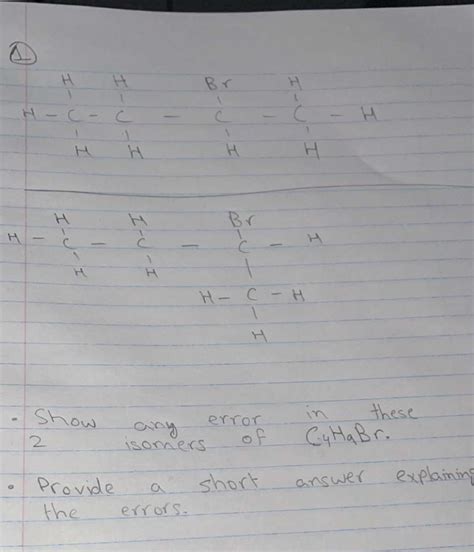 1
H H Br H
H - C - C - C - C - H
H H H H
H H Br
H - C - C - C - H
H H
H - C - H
H
• Show any error in these
2 isomers of C4H9Br.
• Provide a short answer explaining
the errors.